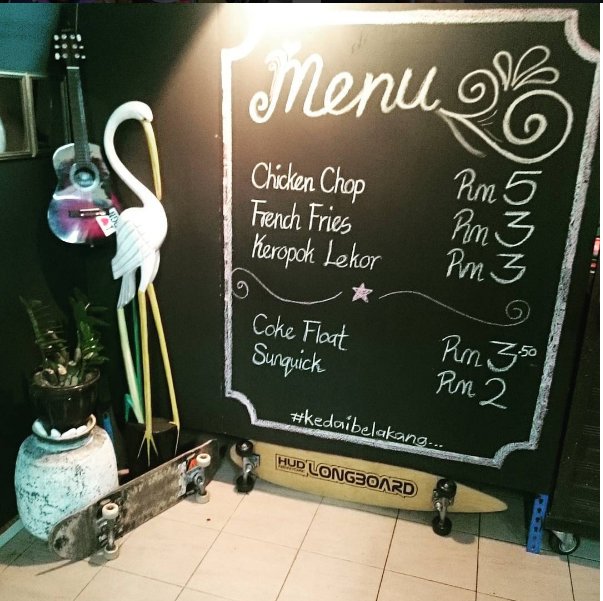 Menu
Chicken Chop Rm 5
French Fries Rm 3
Keropok Lekor Rm 3
Coke Float Rm 3.50
Sunquick Rm 2
#kedaibelakang...
HUD LONGBOARD